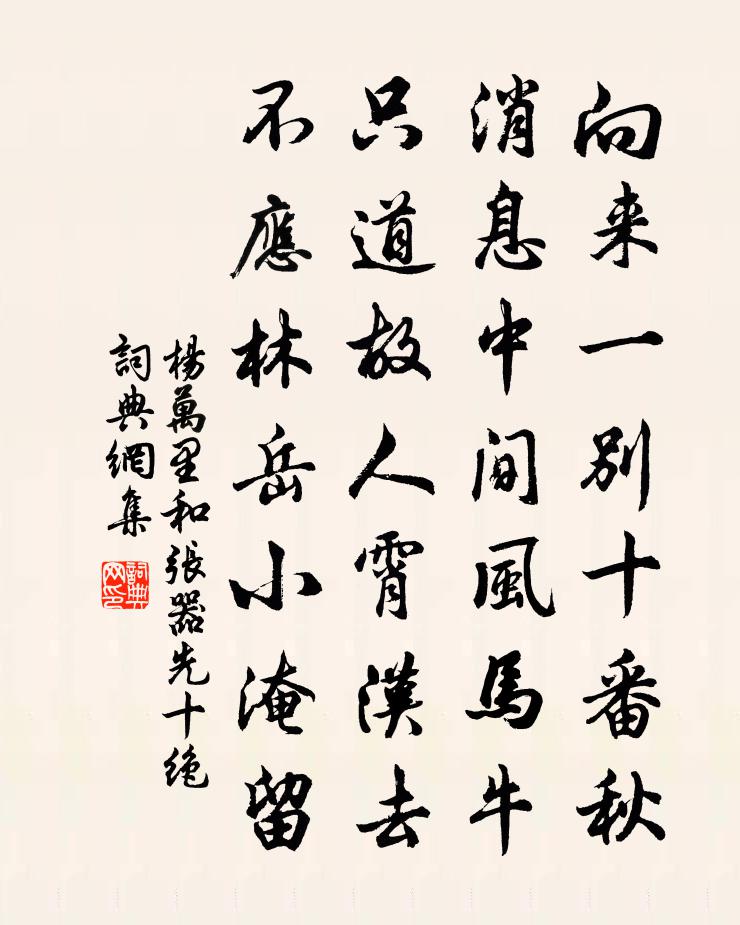 向来一别十番秋
消息中间風馬牛
只道故人霄漢去
不應林岳小淹留
楊萬里和張器先十绝
詞典網集
詞典网印